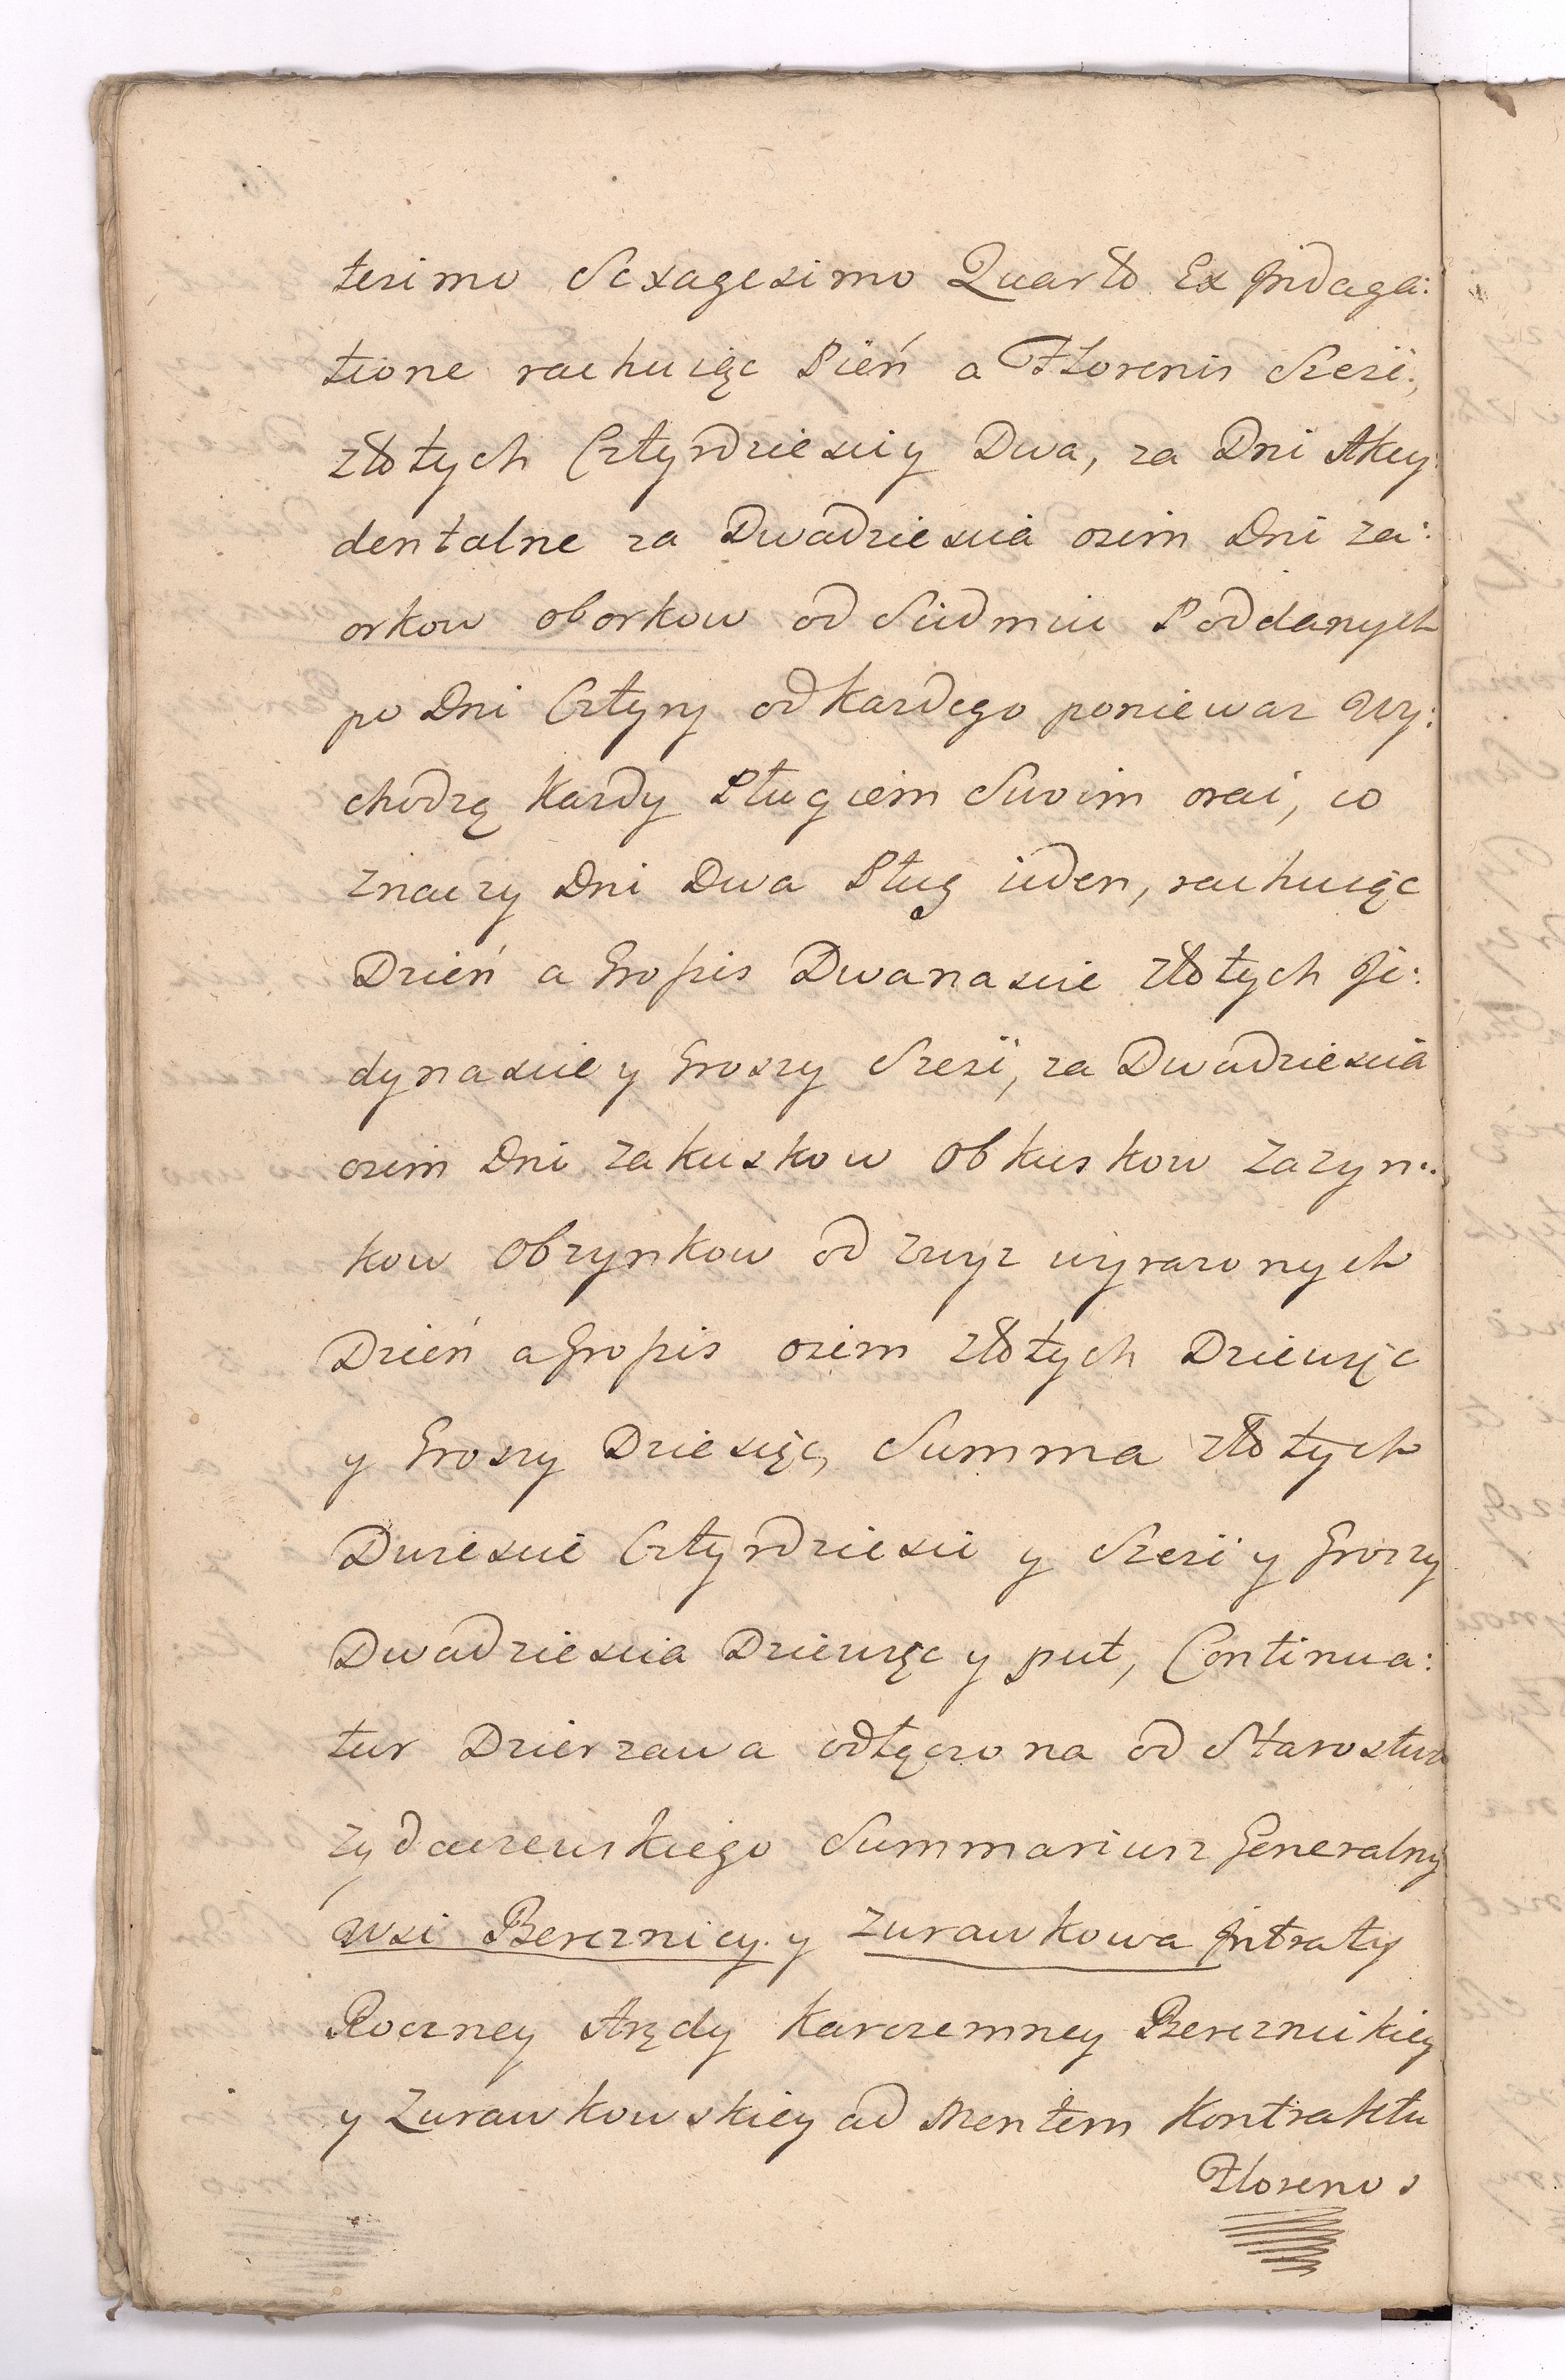 tesimo Sexagesimo Quarto Ex Jndaga:
tione rachuięc Pień a Florenis Szesc,
złotych Cztyrdziesci y Dwa, za Dni Akcy:
dentalne za Dwadziescia osim Dni za:
orkow oborkow od Siedmiu Poddanych
po Dni Cztyry od kazdego poniewaz Wy:
chodzę kazdy Pługiem Swoim orać, co
znaczy Dni Dwa Pług ieden, rachuięc
Dzień a Grossis Dwanascie złotych Je:
dynascie y Groszy Szesc, za Dwadziescia
osim Dni zakuskow Obkuskow zazyn:
kow Obzynkow od zwyz wyrazonych
Dzień a Grossis osim złotych Dziewięc
y Groszy Dziesięc, Summa złotych
Dwiescie Cztyrdziesci y Szesc y Groszy
Dwadziescia Dziewięc y puł, Continua:
tur Dzierzawa odłęczona od Starostwa
Zydaczewskiego Summariusz Generalny
Wsi Bereznicy y Zurawkowa Jntraty
Roczney Arędy Karczemney Bereznickiey
y Zurawkowskiey ad Mentem Kontraktu
Florenos